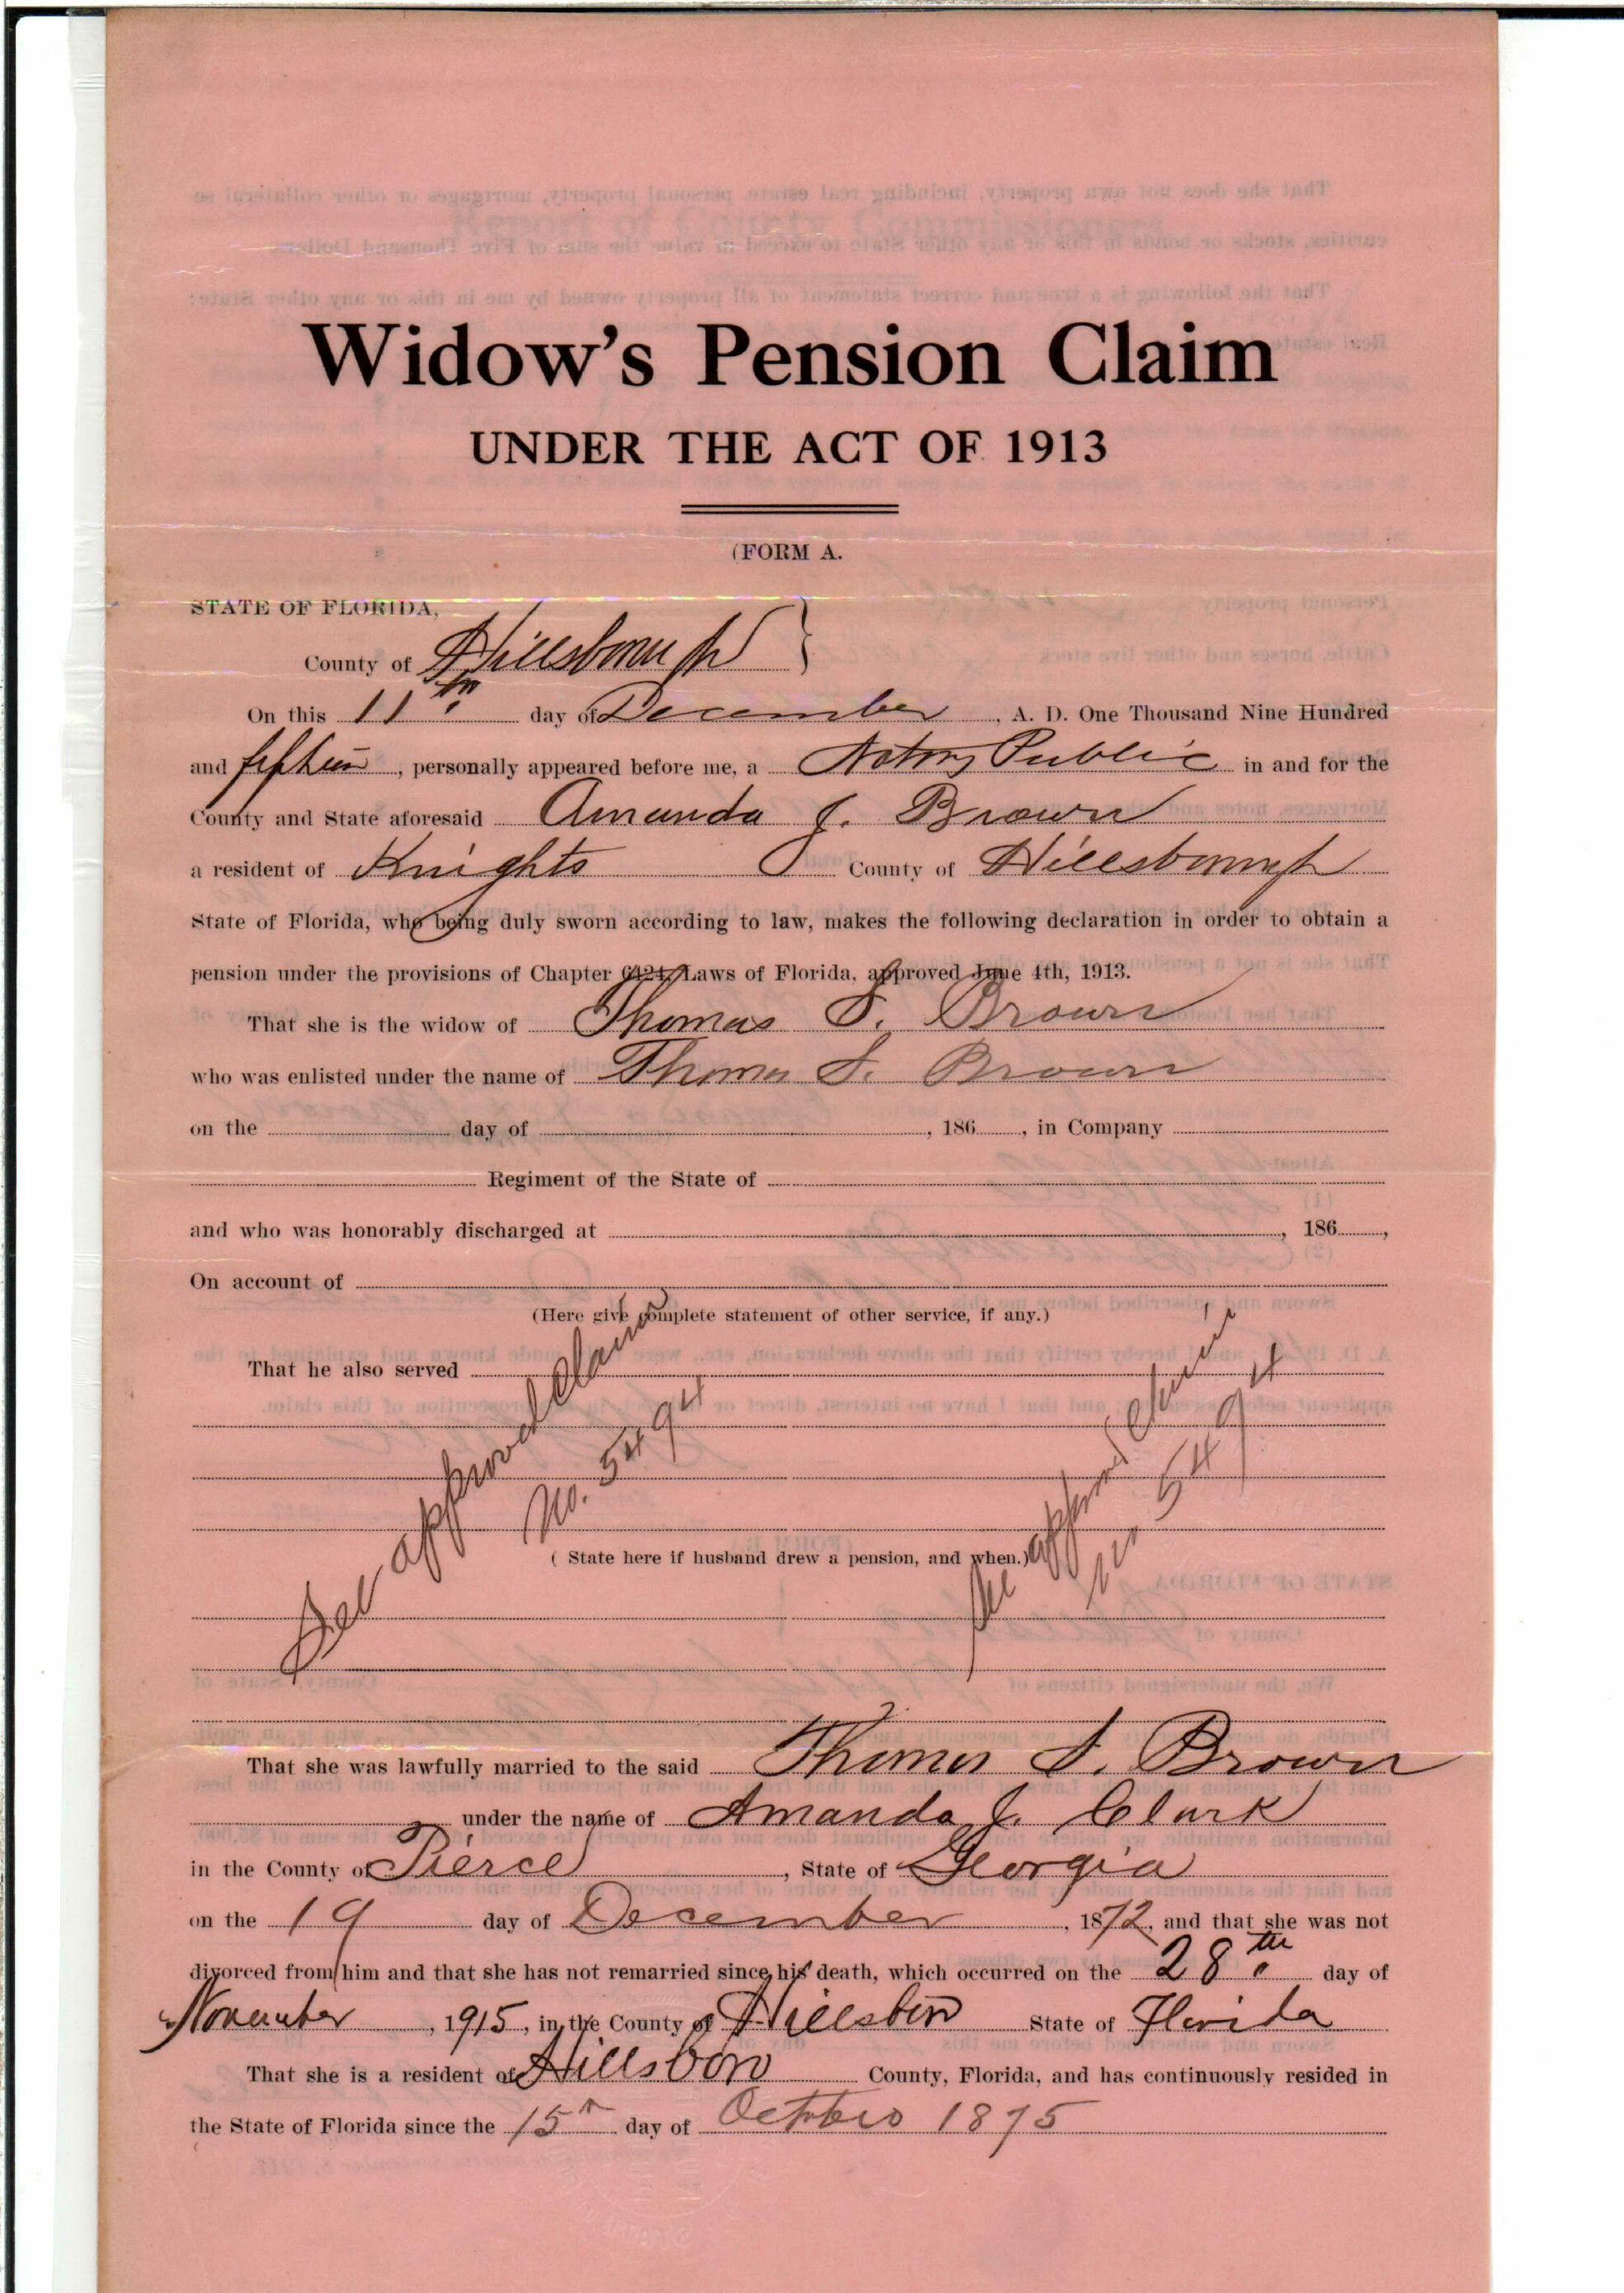 Widow's Pension Claim
UNDER THE ACT OF 1913
(FORM A.
STATE OF FLORIDA,
County of Hillsborough }
On this 11th day of December, A. D. One Thousand Nine Hundred
and fifteen, personally appeared before me, a Notary Public in and for the
County and State aforesaid Amanda J. Brown
a resident of Knights County of Hillsborough
State of Florida, who being duly sworn according to law, makes the following declaration in order to obtain a
pension under the provisions of Chapter 6424 Laws of Florida, approved June 4th, 1913.
That she is the widow of Thomas S. Brown
who was enlisted under the name of Thomas S. Brown
on the day of , 186 , in Company
Regiment of the State of
and who was honorably discharged at , 186 ,
On account of
(Here give complete statement of other service, if any.)
That he also served
See approved claim
No. 5494
See approved claim
No 5494
( State here if husband drew a pension, and when.)
That she was lawfully married to the said Thomas S. Brown
under the name of Amanda J. Clark
in the County of Pierce, State of Georgia
on the 19 day of December, 1872, and that she was not
divorced from him and that she has not remarried since his death, which occurred on the 28th day of
November, 1915, in the County of Hillsboro State of Florida
That she is a resident of Hillsboro County, Florida, and has continuously resided in
the State of Florida since the 15th day of October 1875